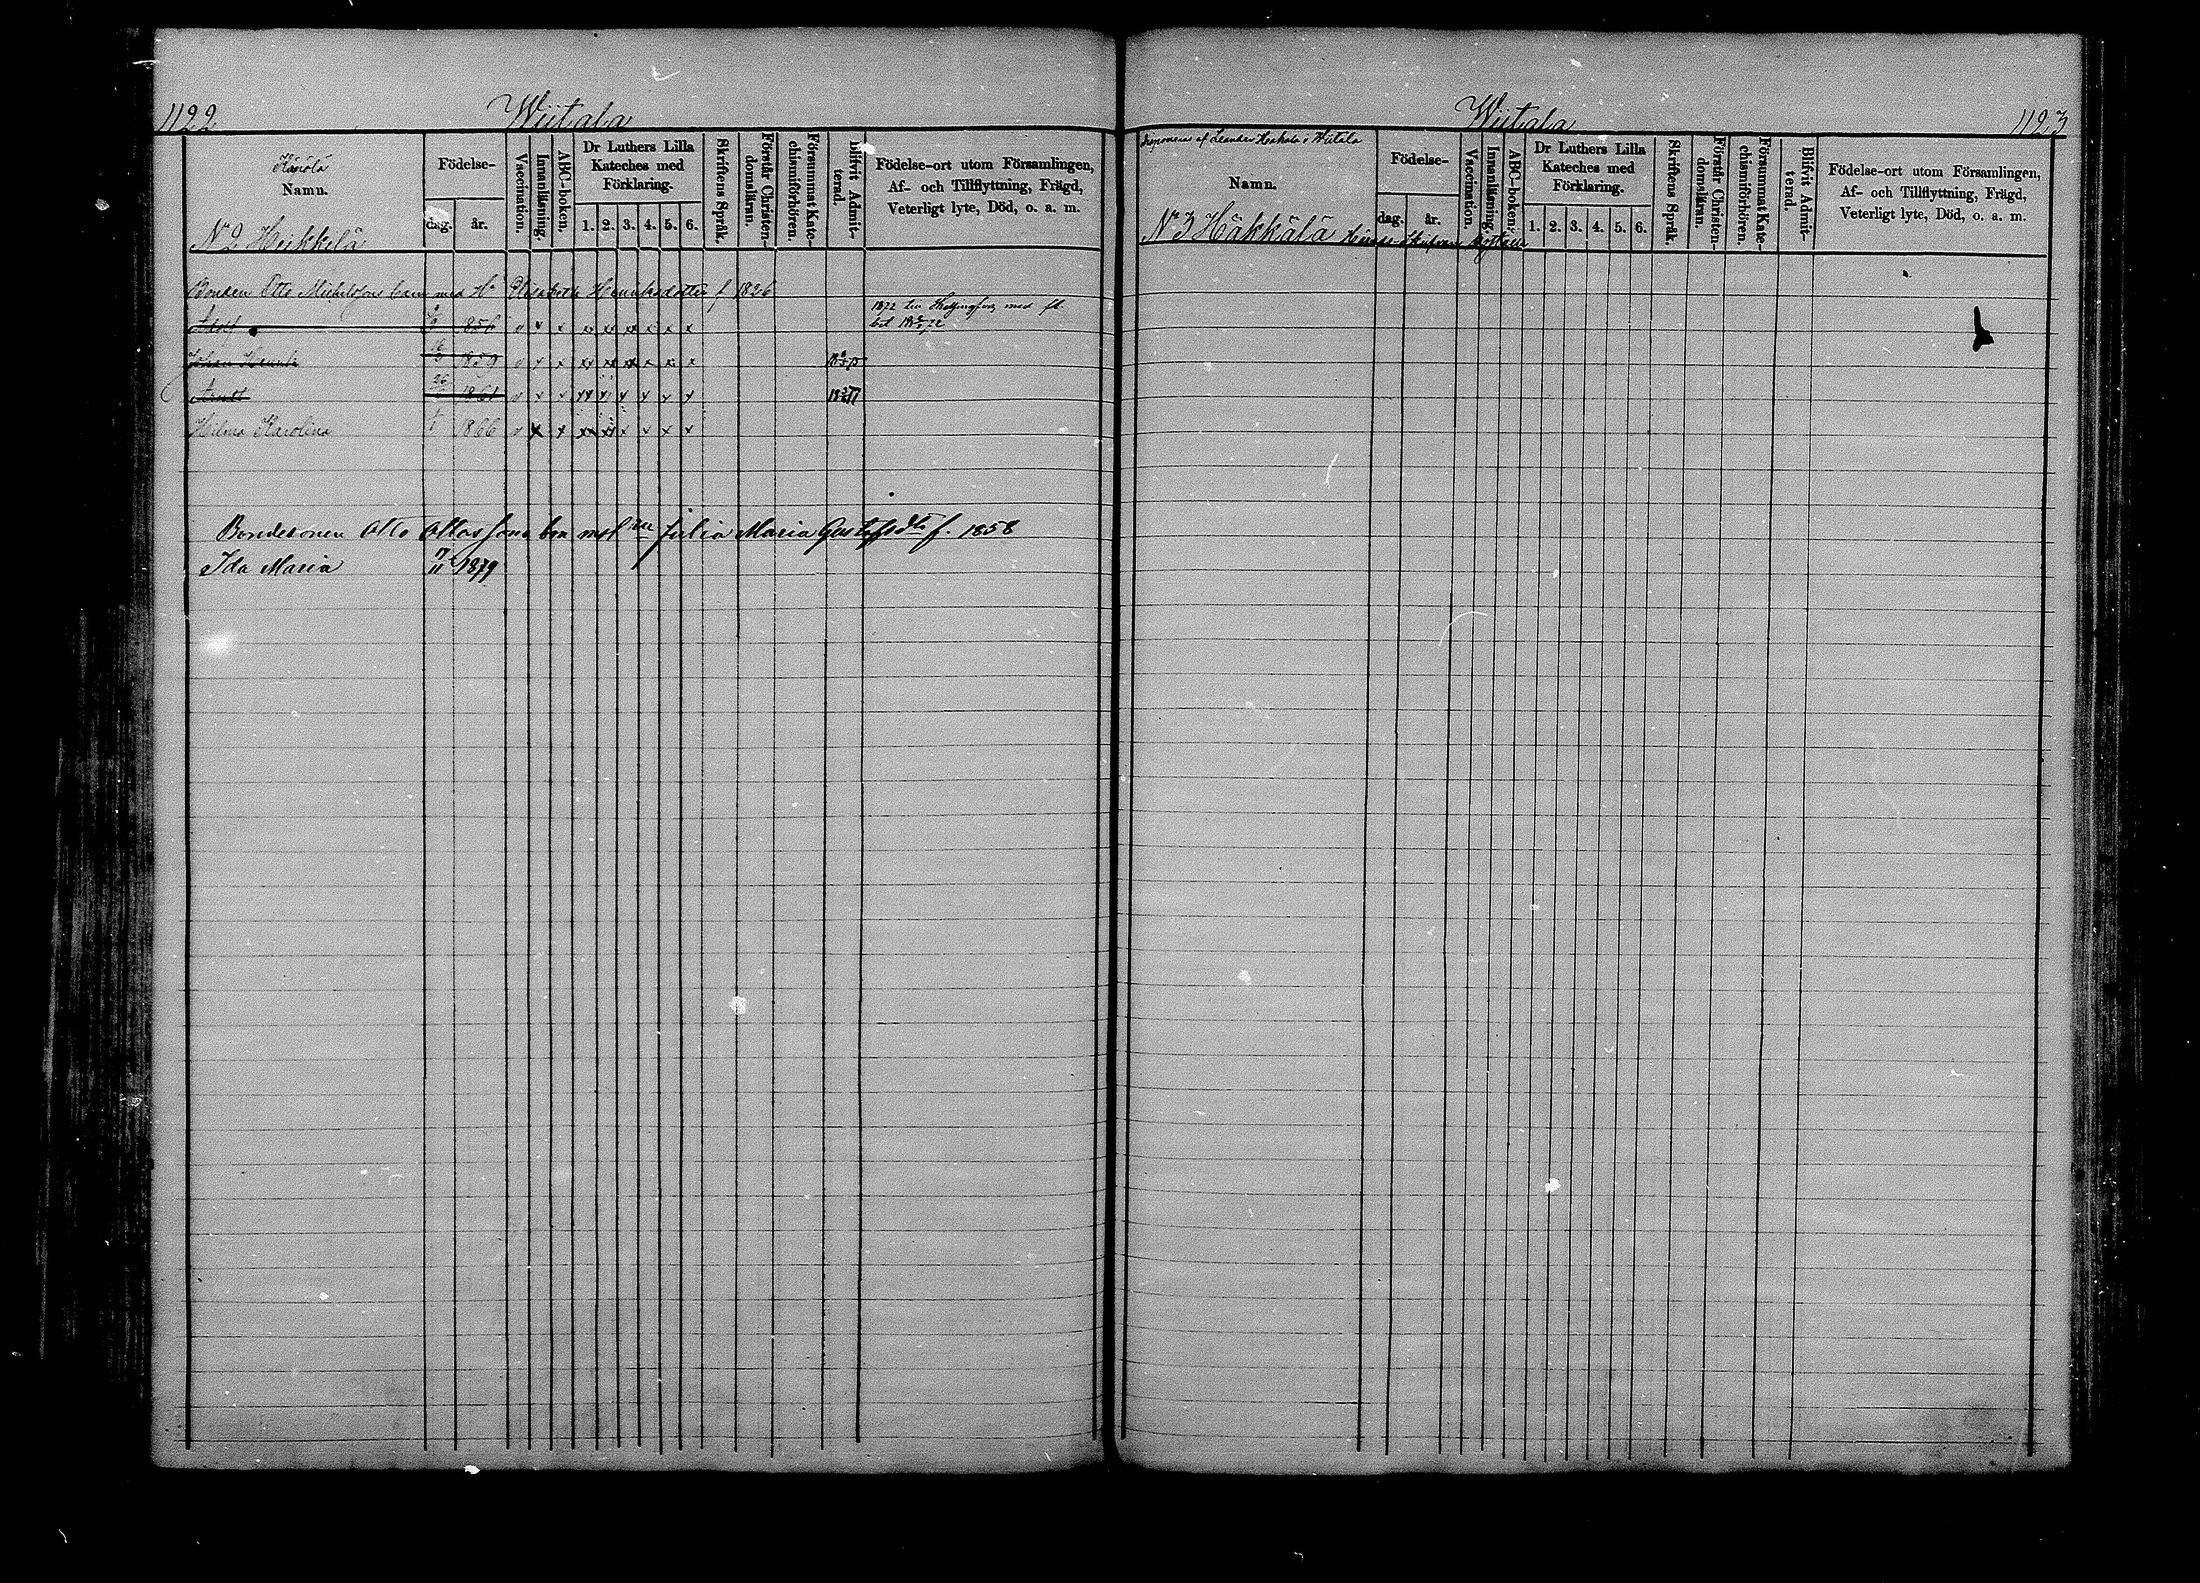 1122
Wiitala
Namn.
Födelse-
dag.
år.
Vaccination.
Innanläsning.
ABC-boken.
Dr Luthers Lilla
Kateches med
Förklaring.
1. 2. 3. 4. 5. 6.
Skriftens Språk.
Förstår Christen-
domsläran.
Försummat Kate-
chismiförhören.
Blifvit Admit-
terad.
Födelse-ort utom Församlingen,
Af- och Tillflyttning, Frägd,
Veterligt lyte, Död, o. a. m.
N 2 Heikkilä
Bonden Otto Michelsons barn med Hu Elisabeth Henriksdotter f 1826
Adolf 1856 v x x x x x x x x
1872 till Helsingfors med
Johan Henrik 1859 v x x x x x x x x
26 1861 v x x x x x x x x
Hilma Karolina 1866 v x x x x x x x x
Bondesonen Otto Ottossons barn med Julia Maria Gustafsdtr f. 1858
Ida Maria 11 1879
Wiitala
1123
Namn.
Födelse-
dag.
år.
Vaccination.
Innanläsning.
ABC-boken.
Dr Luthers Lilla
Kateches med
Förklaring.
1. 2. 3. 4. 5. 6.
Skriftens Språk.
Förstår Christen-
domsläran.
Försummat Kate-
chismiförhören.
Blifvit Admit-
terad.
Födelse-ort utom Församlingen,
Af- och Tillflyttning, Frägd,
Veterligt lyte, Död, o. a. m.
N 3 Häkkälä